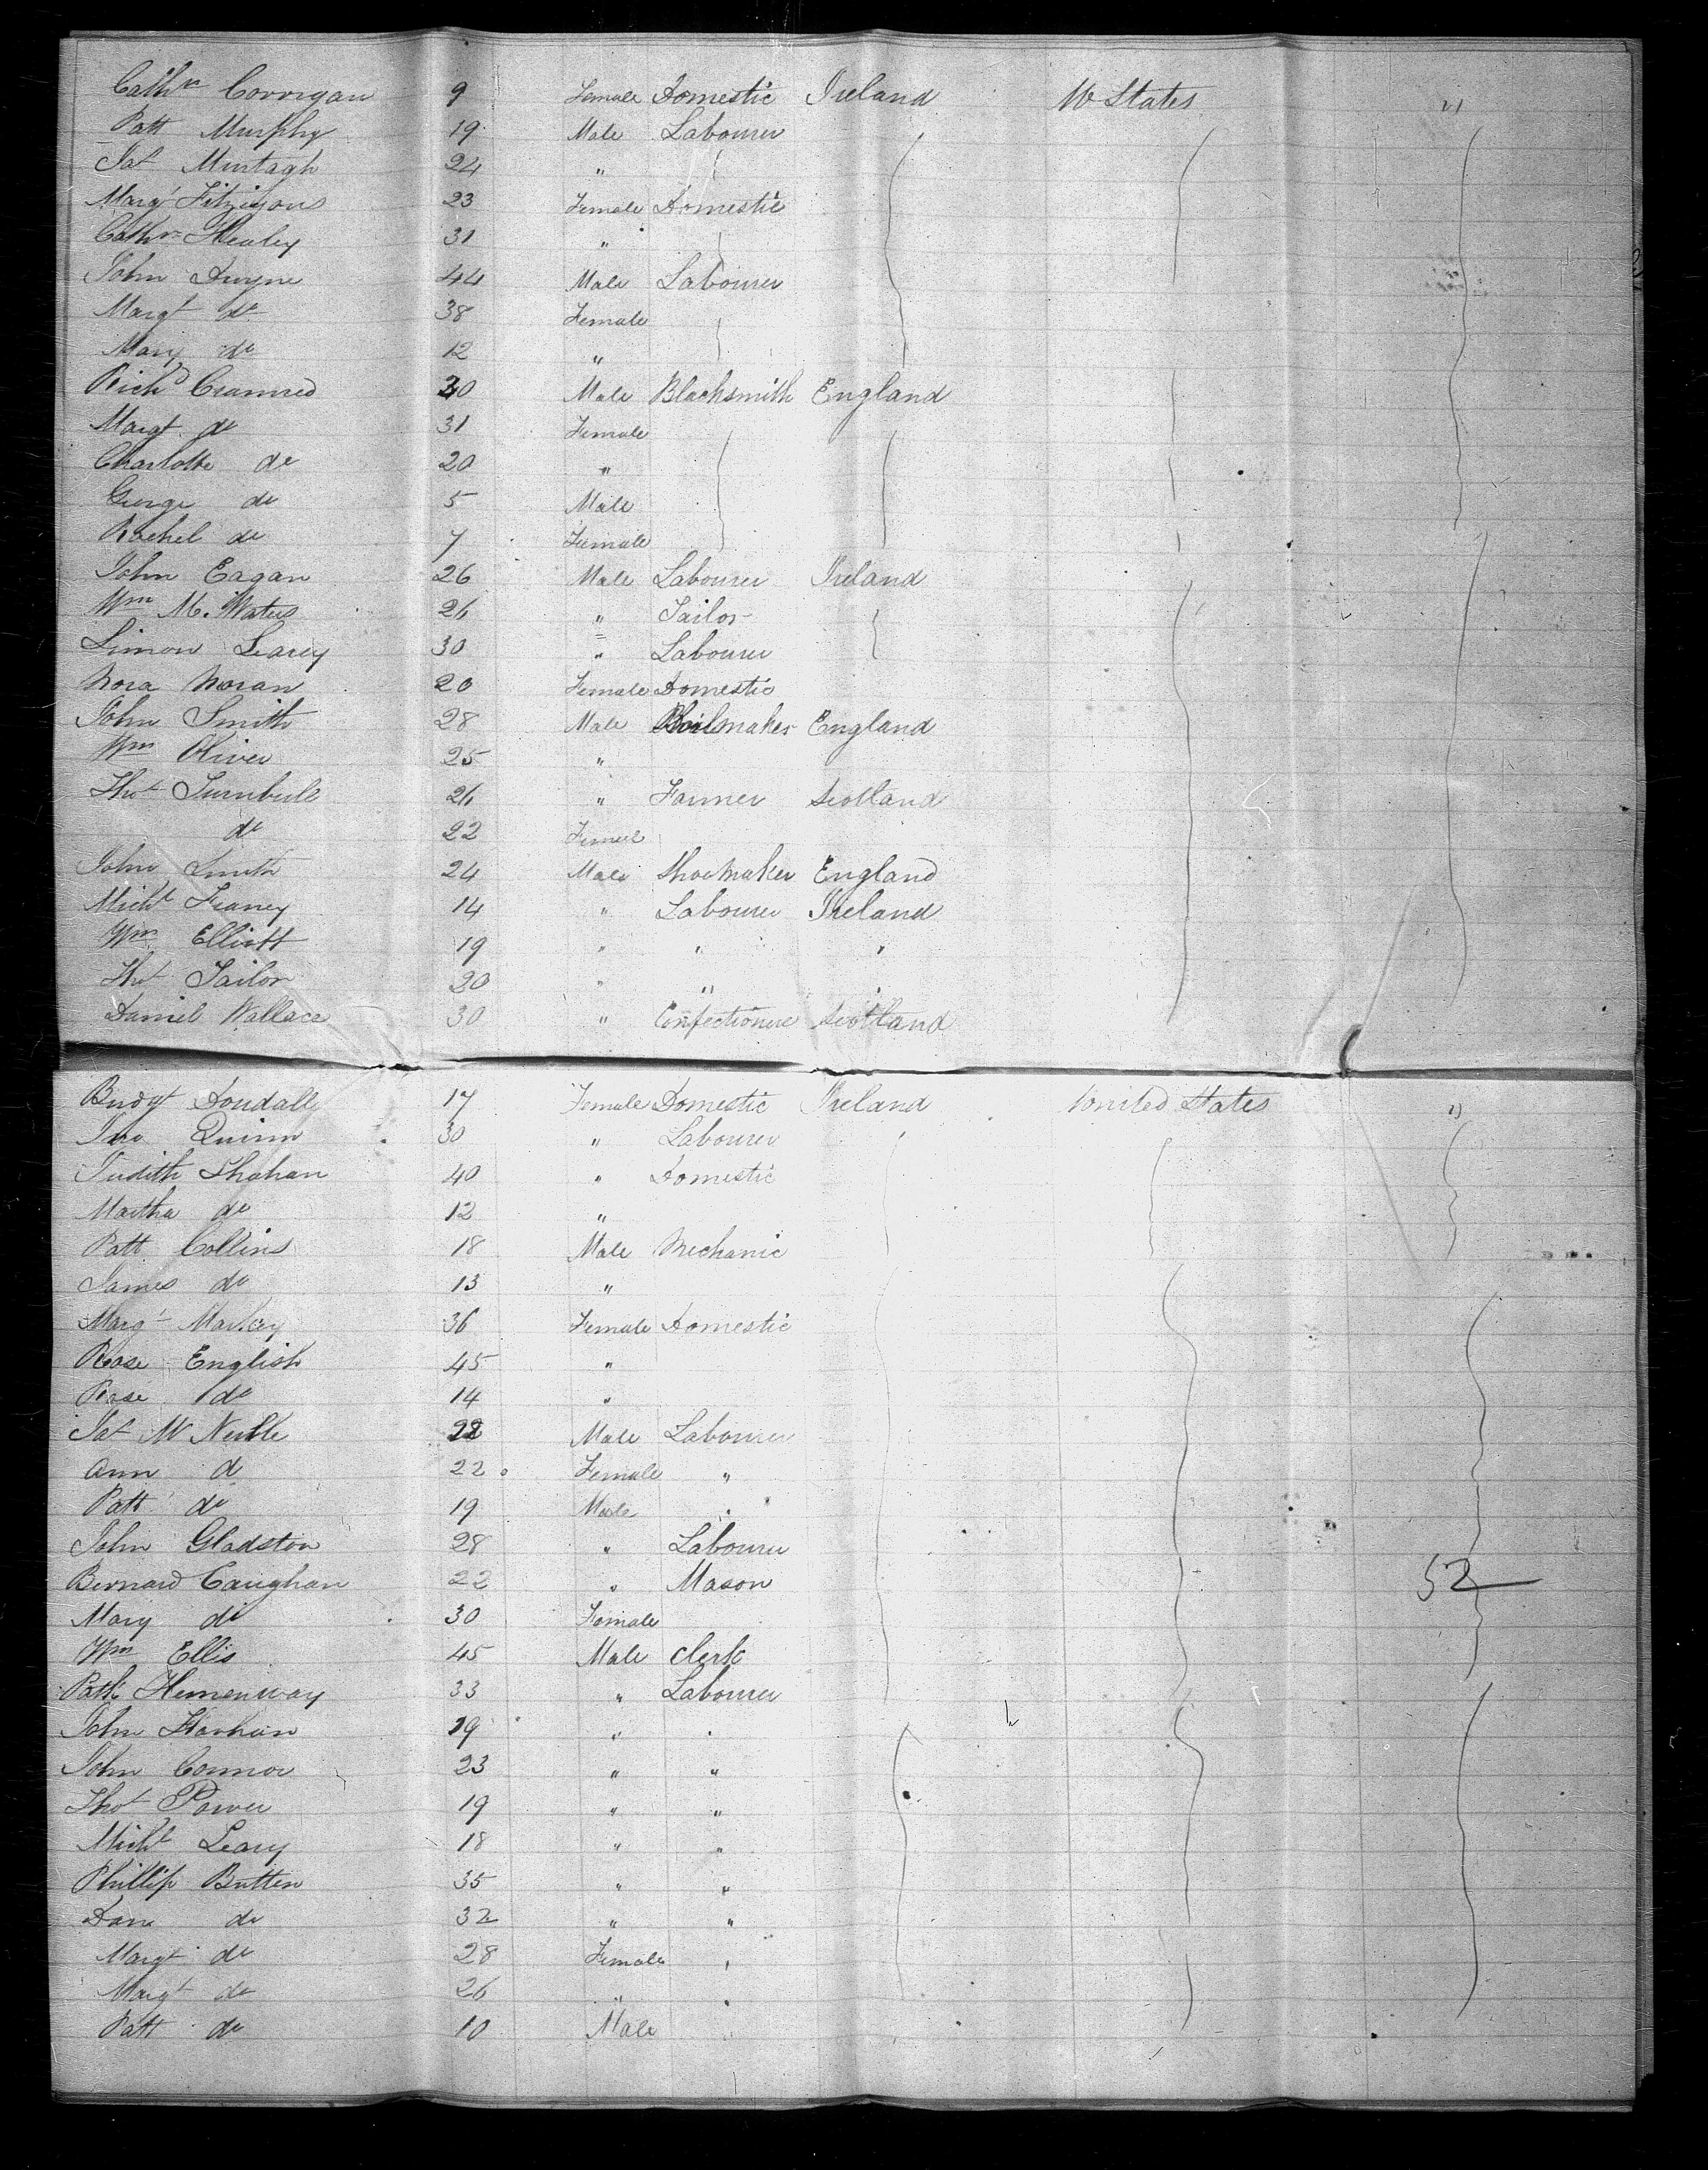 Cathn Corrigan 9 Female Domestic Ireland U States "
Patt Murphy 19 Male Labourer
Jas Murtagh 24 "
Margt Fitzigons 23 Female Domestic
Cathn Healey 31 "
John Dwyne 44 Male Labourer
Margt do 38 Female
Mary do 12 "
Richd Cramred 30 Male Blacksmith England
Margt do 31 Female
Charlotte do 20 "
George do 5 Male
Rachel do 7 Female
John Eagan 26 Male Labourer Ireland
Wm M. Waters 26 " Tailor
Simon Leary 30 " Labourer
Nora Moran 20 Female Domestic
John Smith 28 Male Boilmaker England
Wm Oliver 25 "
Thos Turnbull 26 " Farmer Scotland
do 22 Female
John Smith 24 Male Shoemaker England
Michl Feaney 14 " Labourer Ireland
Wm Elliott 19 " " "
Thos Tailor 20 " " "
Daniel Wallace 30 " Confectioner Scotland
Bridgt Dondall 17 Female Domestic Ireland United States "
Quinn 30 " Labourer
Judith Shahan 40 " Domestic
Martha do 12 "
Patt Collins 18 Male Mechanic
James do 13 "
Margt Markey 36 Female Domestic
Rose English 45 "
Rose do 14 "
Jas McNeille 22 Male Labourer
Ann do 22 Female "
Patt do 19 Male "
John Gladston 28 " Labourer
Bernard Caughan 22 " Mason 52
Mary do 30 Female
Wm Ellis 45 Male Clerk
Patk Hemenway 33 " Labourer
John Harhan 19 " "
John Connor 23 " "
Thos Power 19 " "
Michl Leary 18 " "
Phillip Butten 35 " "
Dan do 32 " "
Margt do 28 Female "
Margt do 26 " "
Patt do 10 Male